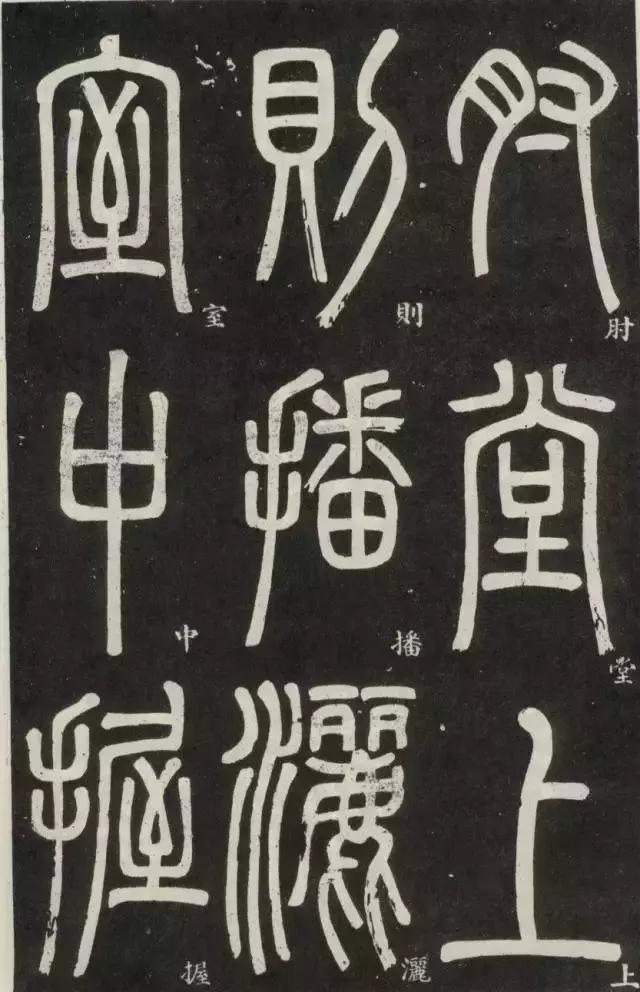 肘堂上
則播灑
室中握